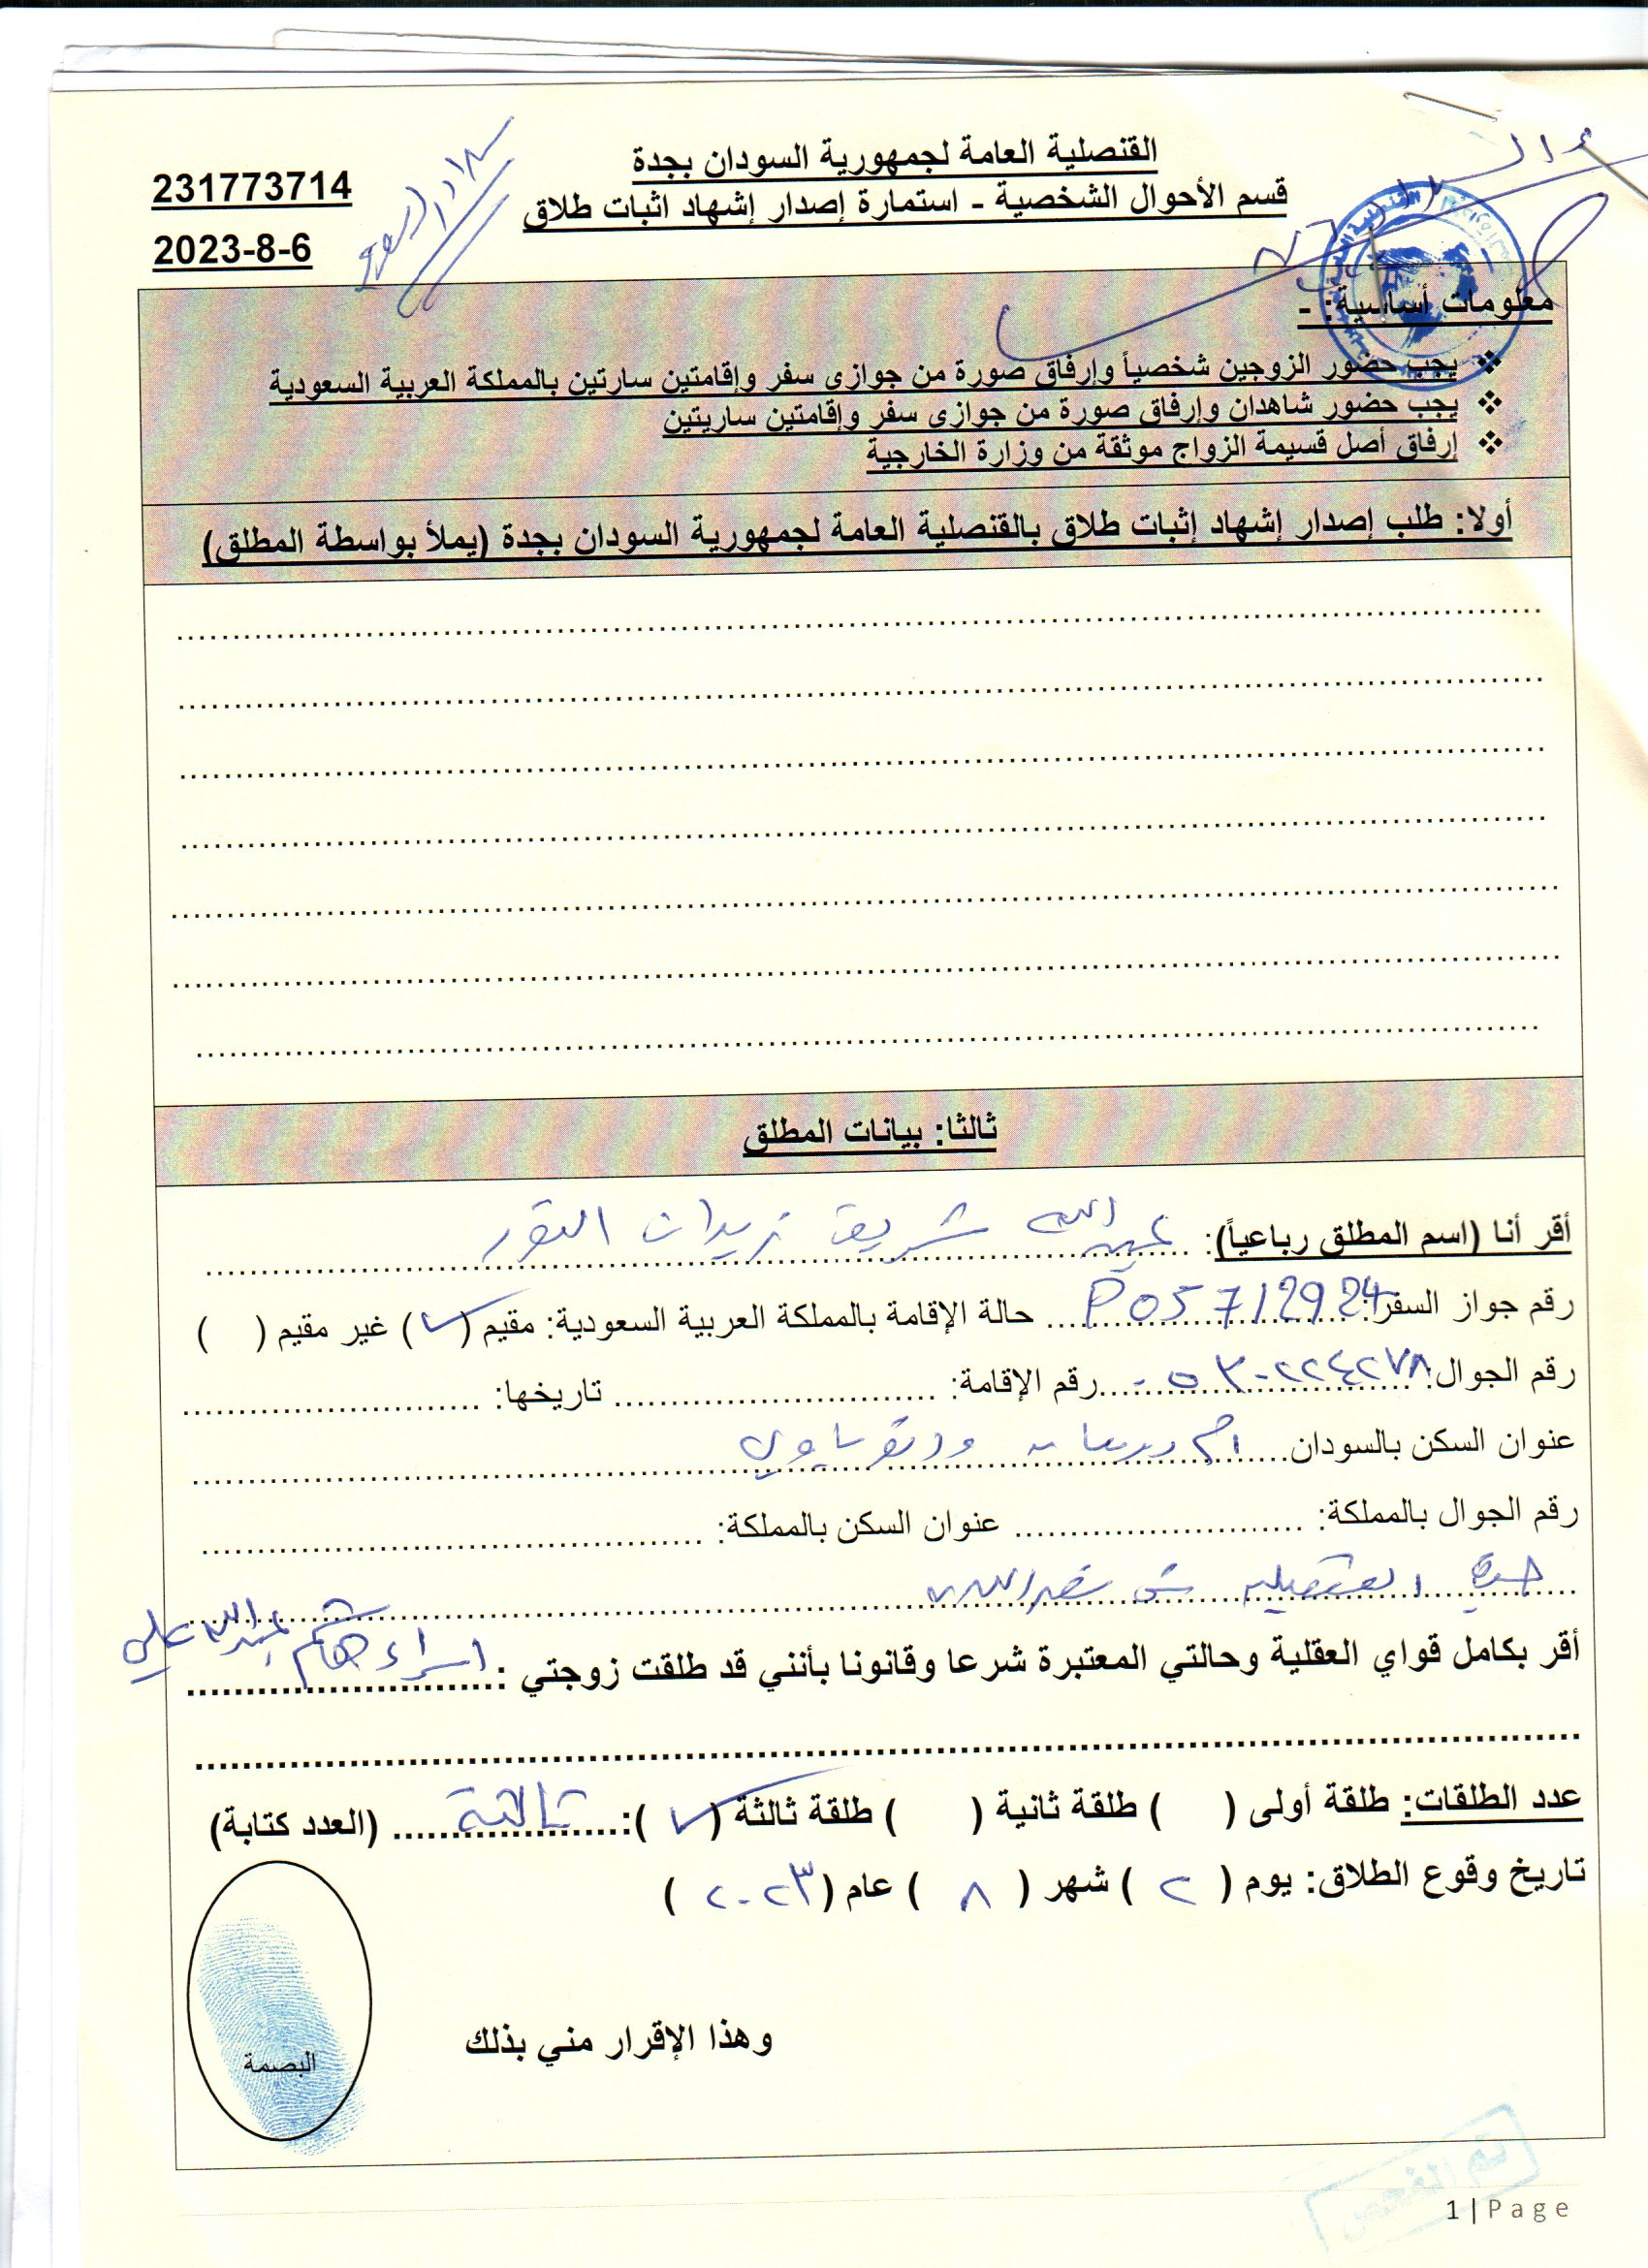 القنصلية العامة لجمهورية السودان بجدة
قسم الأحوال الشخصية - استمارة إصدار إشهاد اثبات طلاق
231773714
2023-8-6
معلومات أساسية: -
❖ يجب حضور الزوجين شخصياً وإرفاق صورة من جوازي سفر وإقامتين سارتين بالمملكة العربية السعودية
❖ يجب حضور شاهدان وإرفاق صورة من جوازي سفر وإقامتين ساريتين
❖ إرفاق أصل قسيمة الزواج موثقة من وزارة الخارجية
أولا: طلب إصدار إشهاد إثبات طلاق بالقنصلية العامة لجمهورية السودان بجدة (يملأ بواسطة المطلق)
ثالثا: بيانات المطلق
أقر أنا (اسم المطلق رباعياً): عبدالله شريف زيدان النور
رقم جواز السفر: P05712924 حالة الإقامة بالمملكة العربية السعودية: مقيم (✓) غير مقيم ( )
رقم الجوال: ٠٥٣٠٢٢٤٢٧٨ رقم الإقامة: تاريخها:
عنوان السكن بالسودان ام درمان ودنوباوي
رقم الجوال بالمملكة: عنوان السكن بالمملكة:
جدة ش
أقر بكامل قواي العقلية وحالتي المعتبرة شرعا وقانونا بأنني قد طلقت زوجتي : اسراء هاشم عبدالله علي
عدد الطلقات: طلقة أولى ( ) طلقة ثانية ( ) طلقة ثالثة (✓): ثالثة (العدد كتابة)
تاريخ وقوع الطلاق: يوم ( ٢ ) شهر ( ٨ ) عام (٢٠٢٣ )
وهذا الإقرار مني بذلك
البصمة
تم الفحص
1 | Page